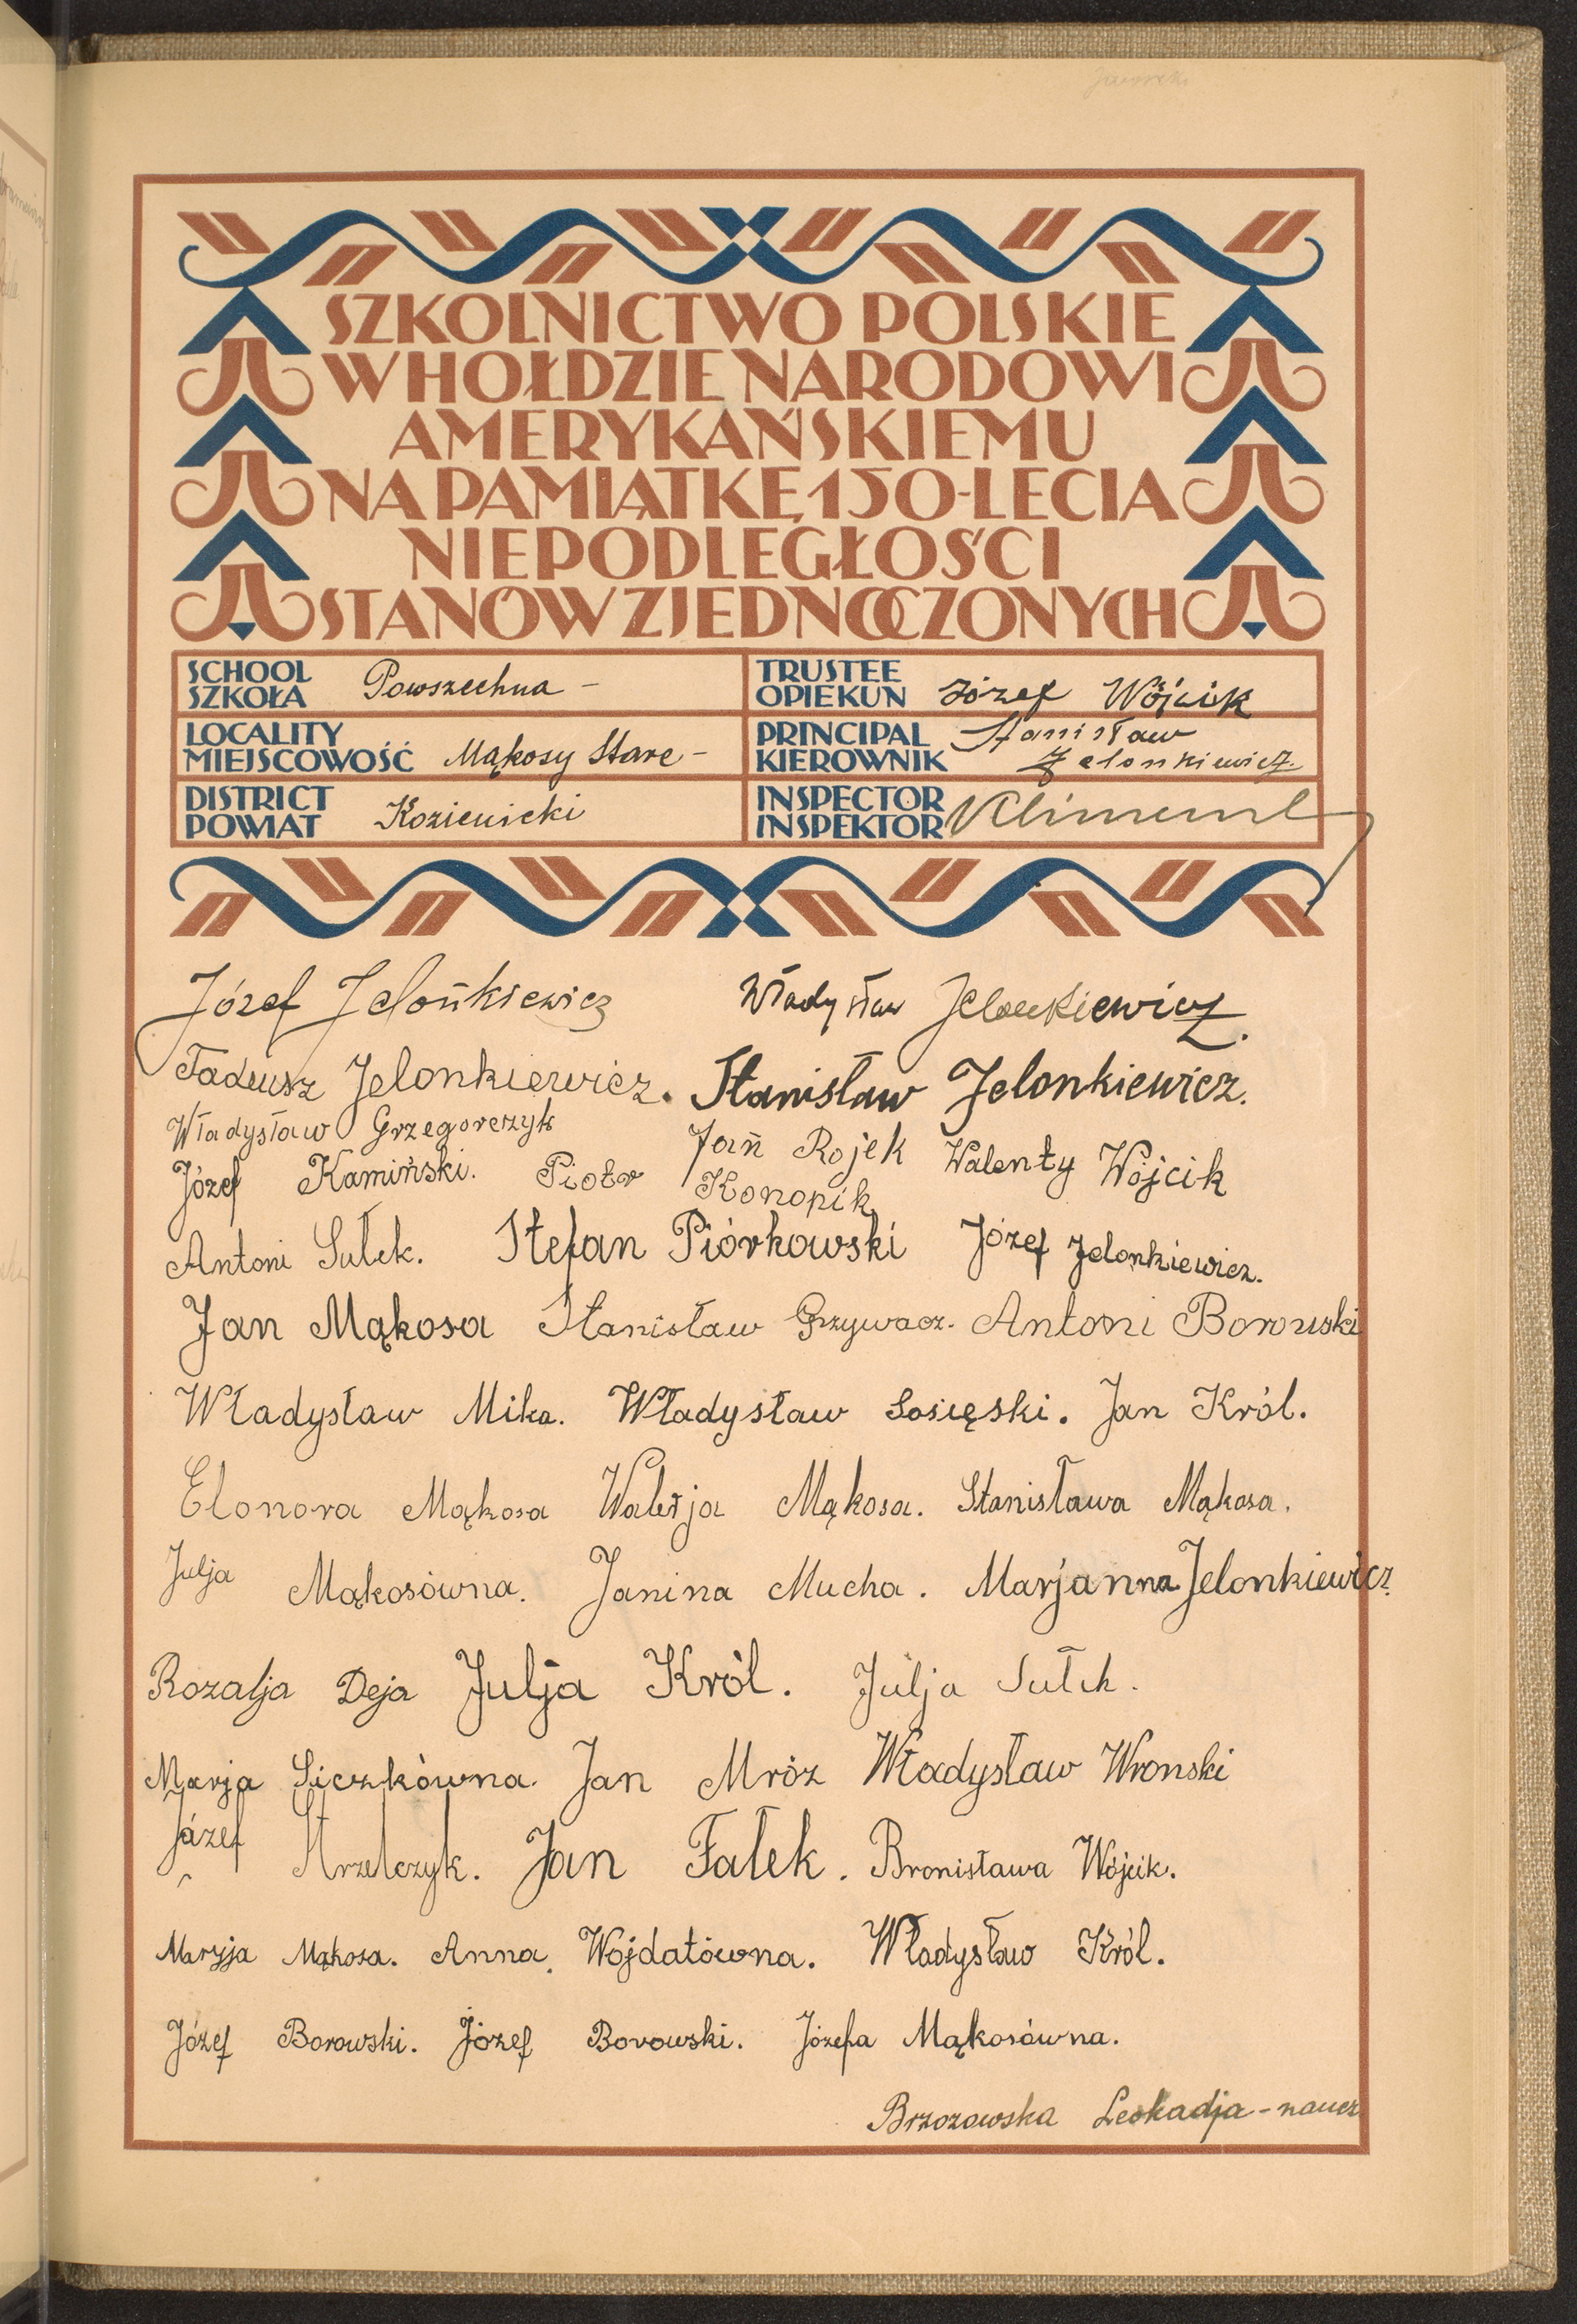 SZKOLNICTWO POLSKIE
W HOŁDZIE NARODOWI
AMERYKAŃSKIEMU
NA PAMIĄTKĘ 150-LECIA
NIEPODLEGŁOŚCI
STANÓW ZJEDNOCZONYCH
SCHOOL
SZKOŁA Powszechna –
TRUSTEE
OPIEKUN Józef Wójcik
LOCALITY
MIEJSCOWOŚĆ Mąkosy Stare –
PRINCIPAL Stanisław
KIEROWNIK Jelonkiewicz.
DISTRICT
POWIAT Kozienicki
INSPECTOR
INSPEKTOR
Józef Jelońkiewicz Władysław Jelonkiewicz.
Tadeusz Jelonkiewicz. Stanisław Jelonkiewicz.
Władysław Grzegorczyk Jań Rojek Walenty Wójcik
Józef Kamiński. Piotr Konopik
Antoni Sułek. Stefan Piórkowski Józef Jelonkiewicz.
Jan Mąkosa Stanisław Grzywacz. Antoni Borowski
Władysław Mika. Władysław Łosięski. Jan Król.
Elonora Mąkosa Walerja Mąkosa. Stanisława Mąkosa.
Julja Mąkosówna. Janina Mucha. Marjanna Jelonkiewicz.
Rozalja Deja Julja Król. Julja Sułek.
Marja Siczkówna. Jan Mróz Władysław Wronski
Józef Strzelczyk. Jan Fałek. Bronisława Wójcik.
Maryja Mąkosa. Anna Wojdatówna. Władysław Król.
Józef Borowski. Józef Borowski. Józefa Mąkosówna.
Brzozowska Leokadja – naucz